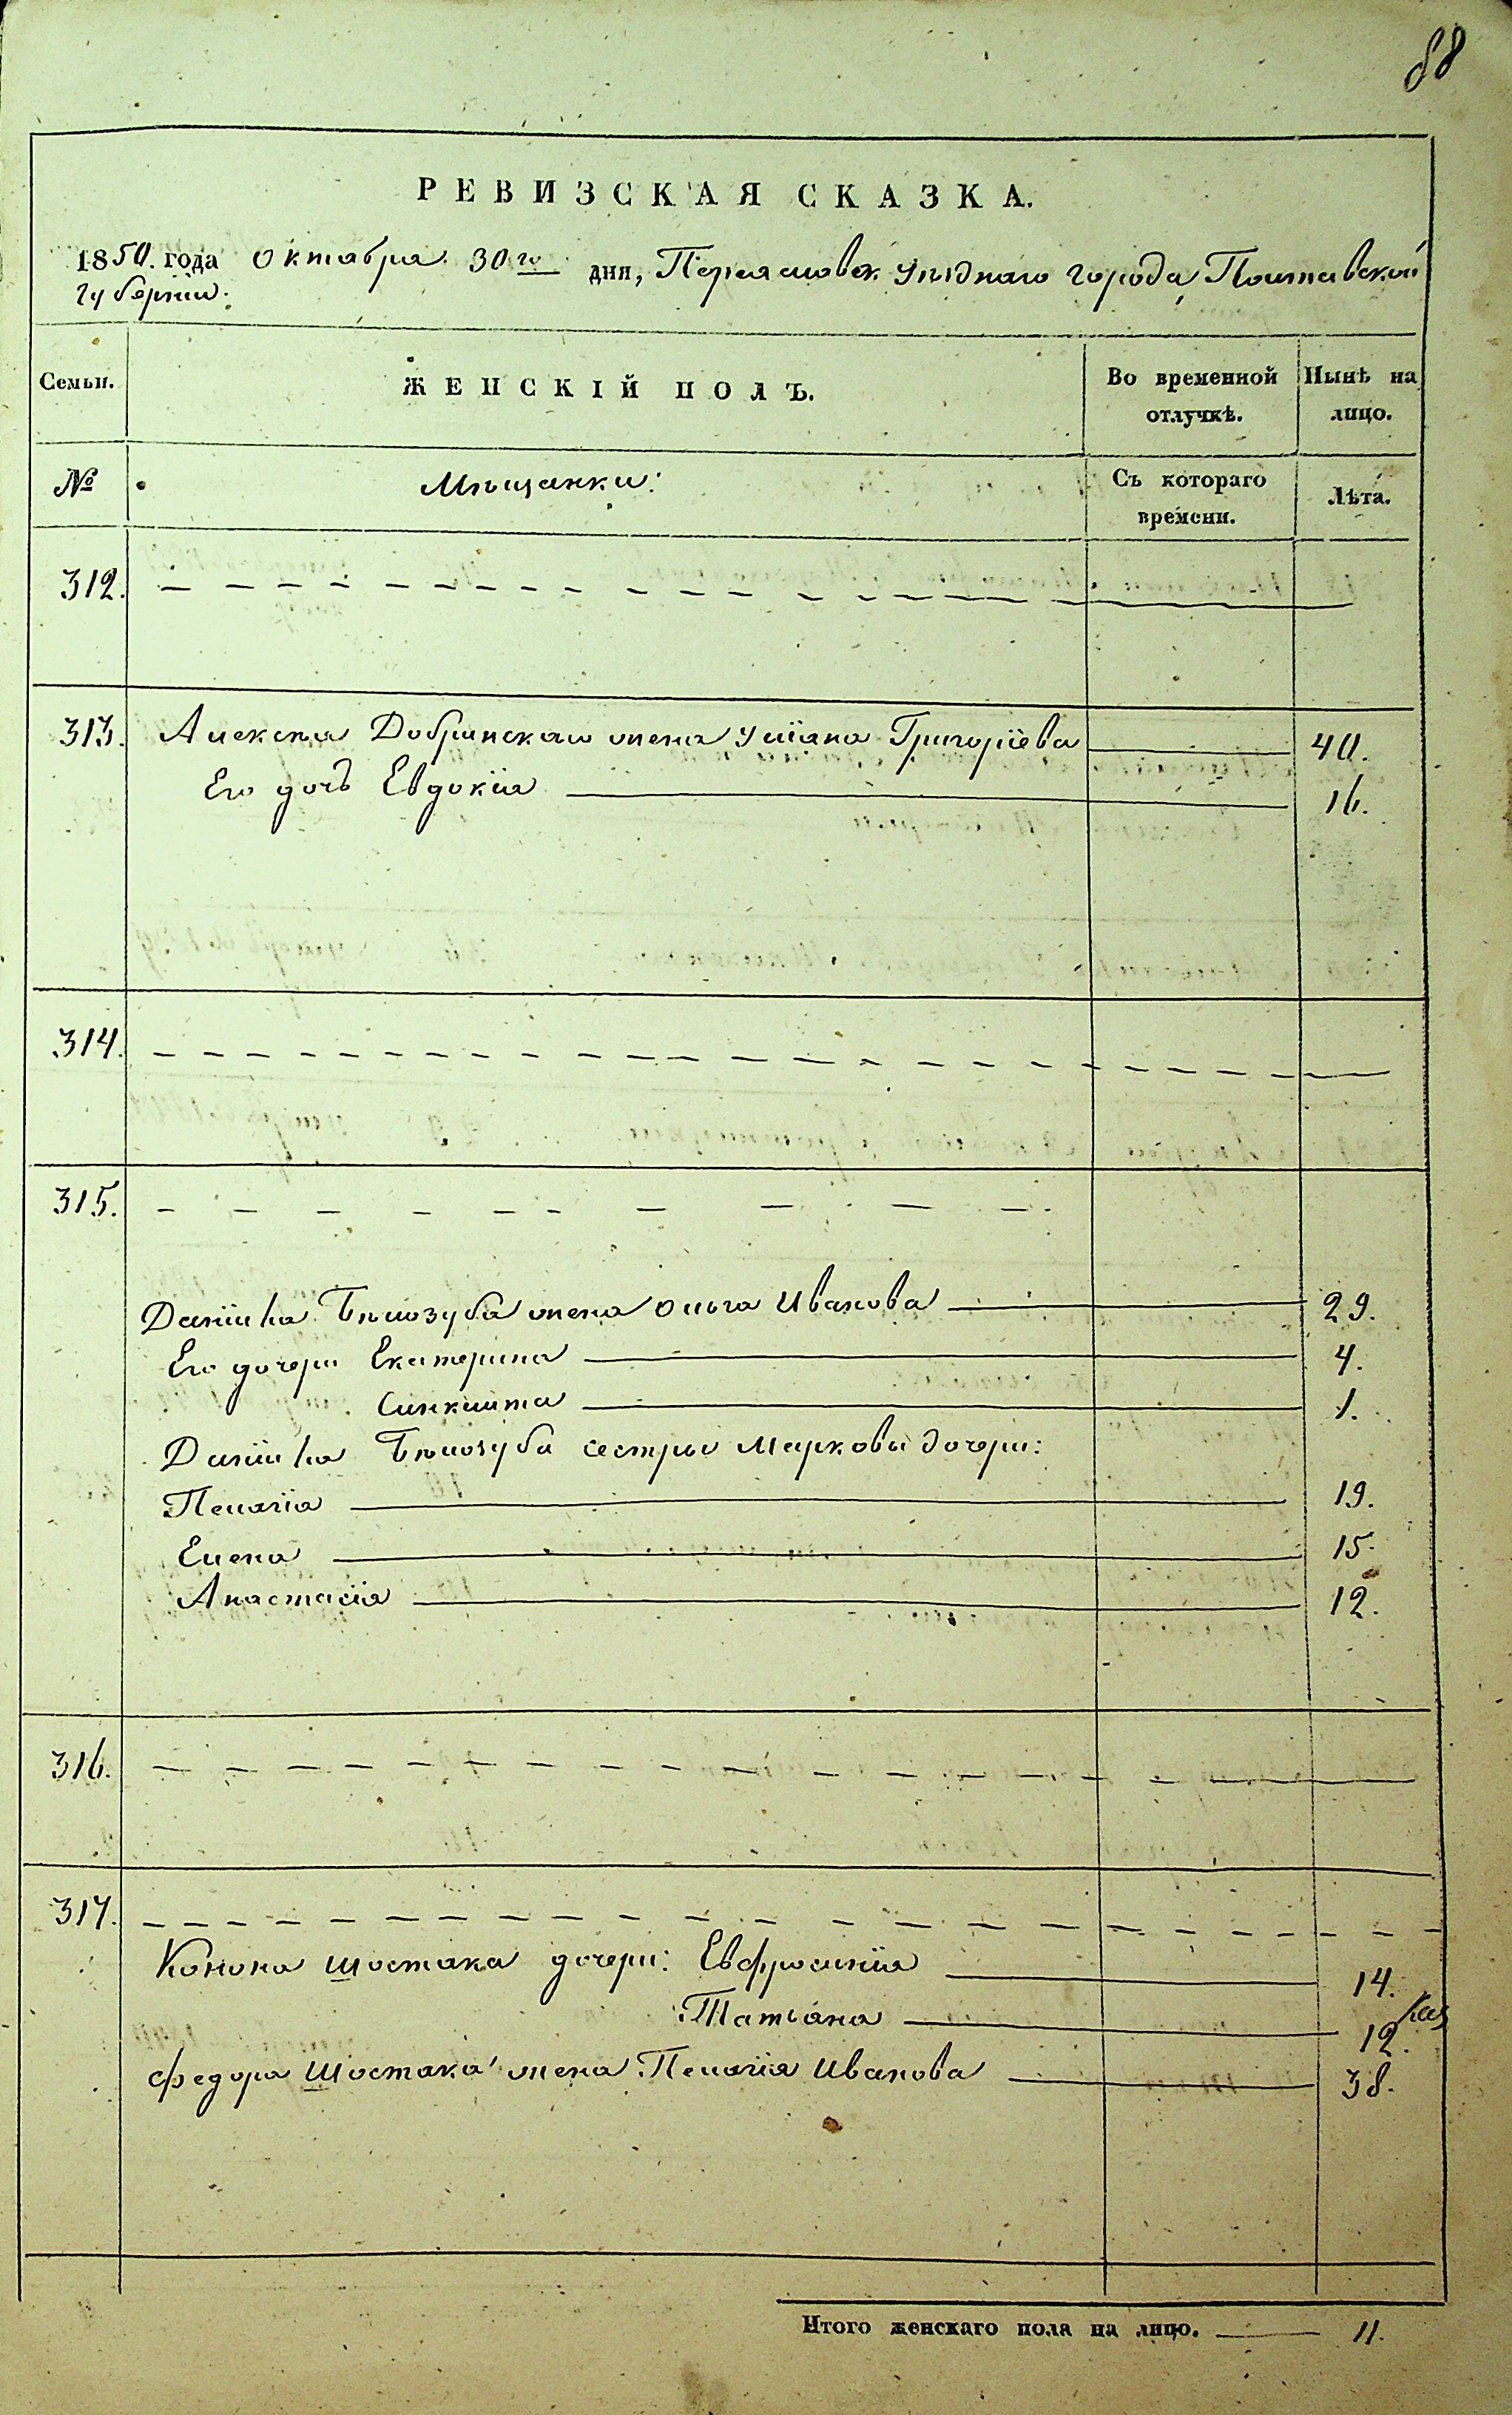 88
РЕВИЗСКАЯ СКАЗКА.
1850. года октября 30го дня, Переяслова уѣзднаго города, Полтавской
губерніи.
Семьи.
ЖЕНСКІЙ ПОЛЪ.
Во временной отлучкѣ.
Нынѣ на лицо.
№
Мѣщанки:
Съ котораго времени.
Лѣта.
312.
313. Алексѣя Добринскаго жена Уліана Григоріева 40.
Его дочь Евдокія 16.
314.
315.
Даніила Бѣлозуба жена Ольга Иванова 29.
Его дочери Екатерина 4.
Синклита 1.
Даніила Бѣлозуба сестры Марковы дочери:
Пелагія 19.
Елена 15.
Анастасія 12.
316.
317.
Конона Шостака дочери: Евфросинія 14.
Татіана 12.
Федора Шостака жена Пелагія Иванова 38.
Итого женскаго пола на лицо. 11.